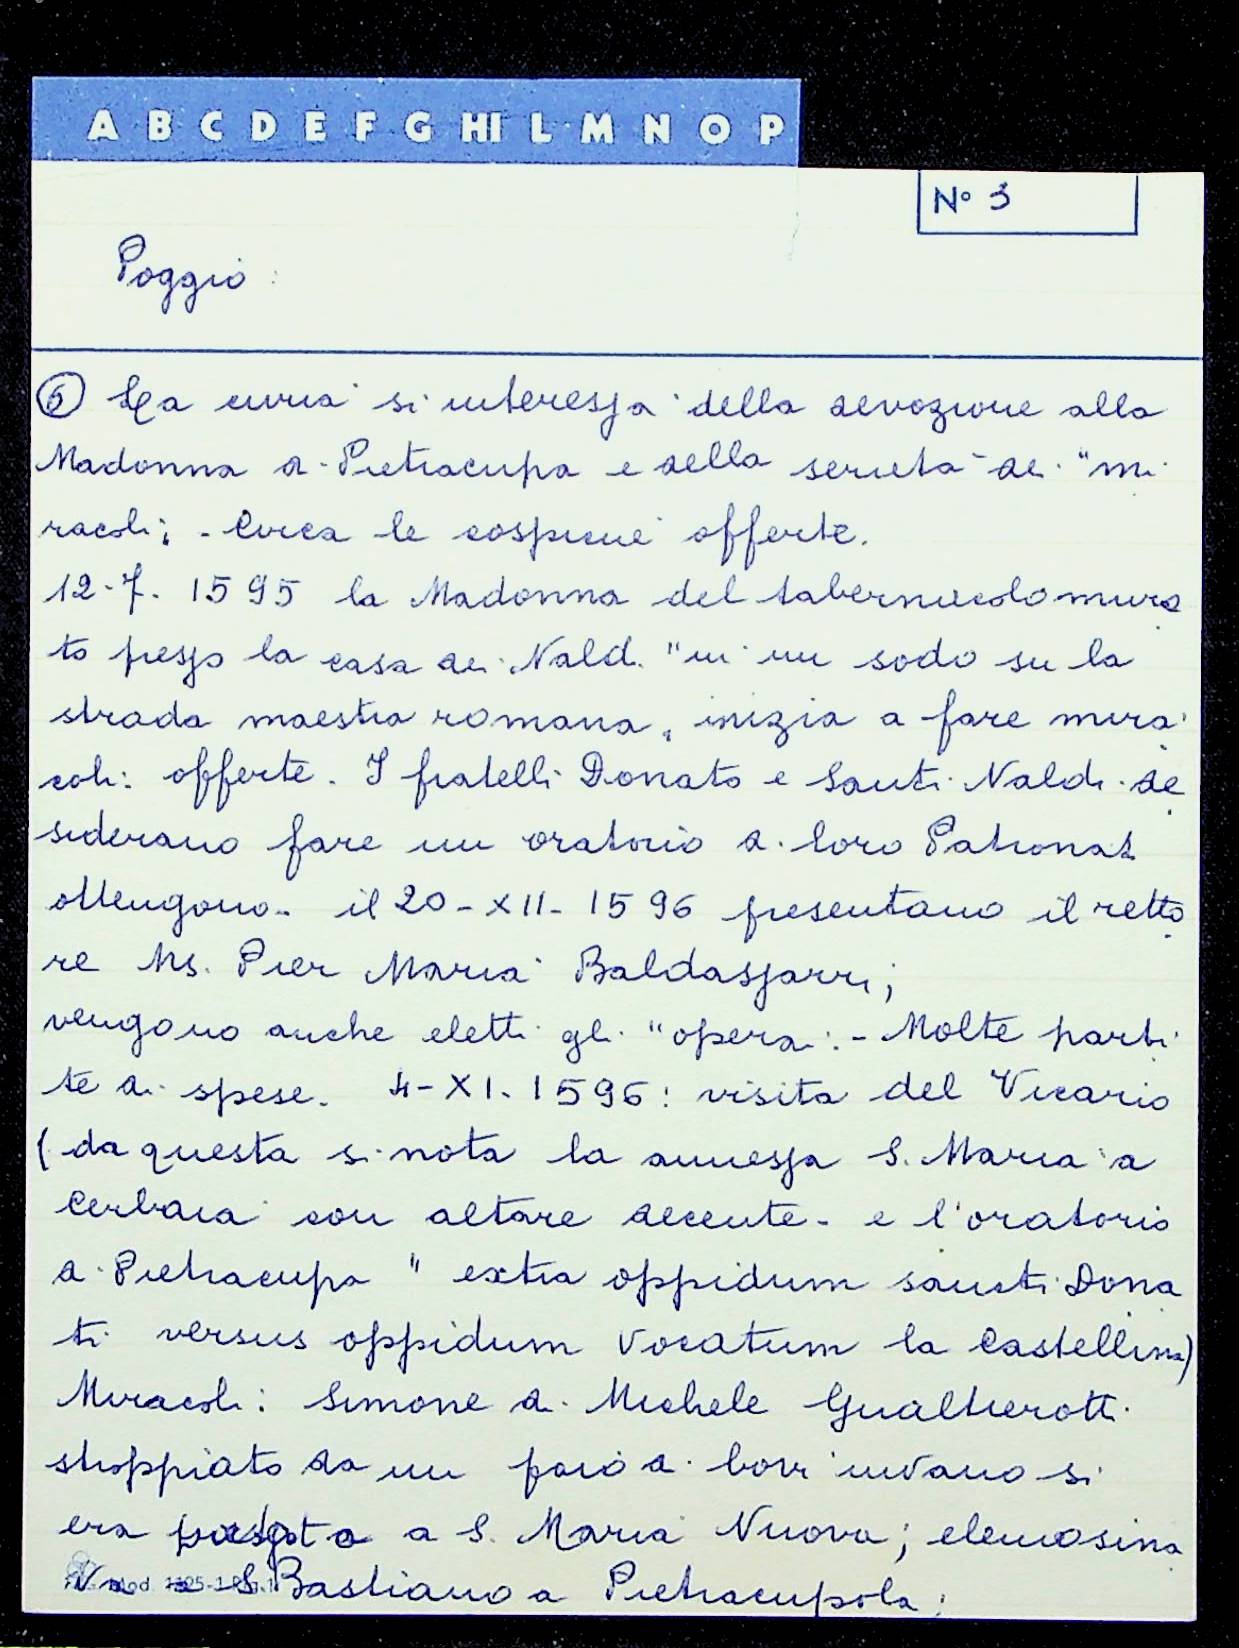 A B C D E F G HI L M N O P
N° 3
Poggio:
⑤ La curia si interessa della devozione alla
Madonna di Pietracupa e della serietà dei "mi
racoli; - Circa le cospicue offerte.
12-7-1595 la Madonna del tabernacolo mura
to presso la casa dei Naldi "in un sodo su la
strada maestra romana, inizia a fare mira
coli: offerte. I fratelli Donato e Santi Naldi de
siderano fare un oratorio di loro Patronat
ottengono. il 20-XII-1596 presentano il retto
re Ms. Pier Maria Baldassarri;
vengono anche eletti gli "operai: - Molte parti
te di spese. 4-XI-1596: visita del Vicario
(da questa si nota la annessa S. Maria a
Cerbaia con altare decente - e l'oratorio
a Pietracupa " extra oppidum sancti Dona
ti versus oppidum vocatum la Castellina)
Miracoli: Simone di Michele Gualtierotti
stroppiato da un paio di bovi invano si
era a S. Maria Nuova; elemosina
S. Bastiano a Pietracupola;
Mod. 1105-1